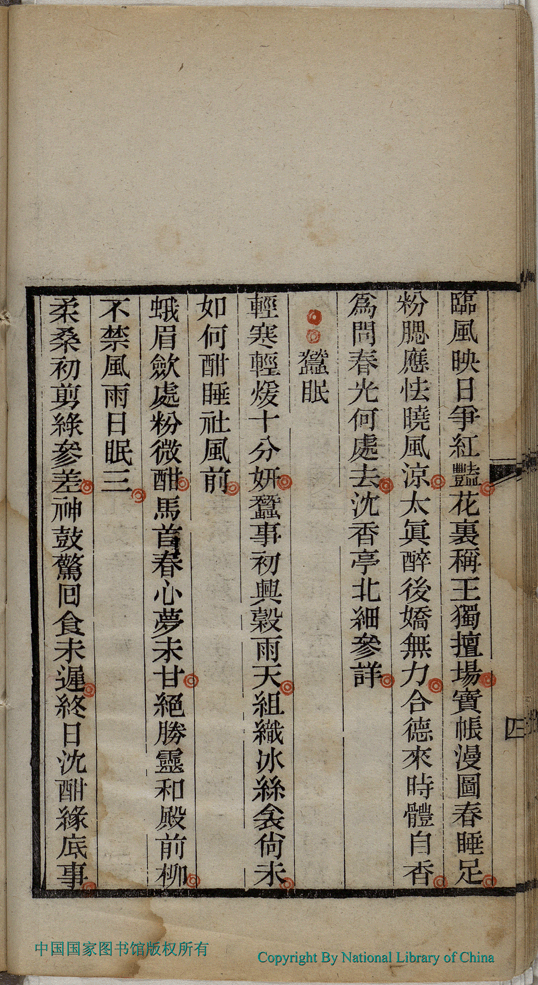 臨風映日爭紅豔花裏稱王獨擅場寶帳漫圖春睡足
粉腮應怯曉風涼太眞醉後嬌無力合德來時體自香
爲問春光何處去沈香亭北細參詳
蠶眠
輕寒輕煖十分妍蠶事初興穀雨天組織冰絲衾尙未
如何酣睡社風前
蛾眉歛處粉微酣馬首春心夢未甘絕勝靈和殿前柳
不禁風雨日眠三
柔桑初剪綠參差神鼓驚回食未遲終日沈酣緣底事
四
中国国家图书馆版权所有
Copyright By National Library of China